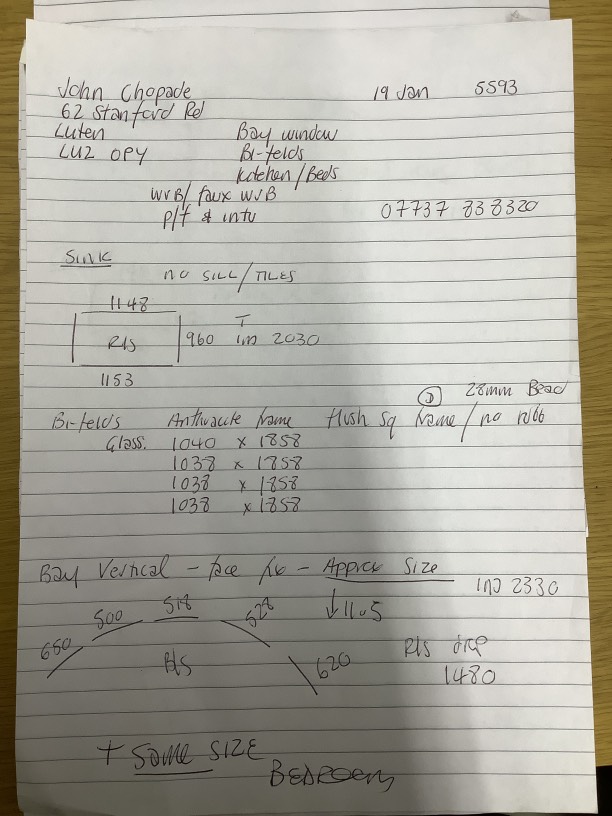 John Chopade 19 Jan 5593
62 Stanford Rd
Luton
LU2 0PY
Bay window
Bi-folds
kitchen/Beds
WVB/ faux WVB
p/f & intu 07737 838320
SINK
NO SILL/TILES
1148
Rls 960 T in 2030
1153
D 28mm Bead
Bi-folds Anthracite frame flush sq frame/no
Glass. 1040 x 1858
1038 x 1858
1038 x 1858
1038 x 1858
Bay Vertical - face fix - Approx Size
in 2330
650 500 518 528 620
↓1105
Rls
Rls drp
1480
+ Same SIZE
BEDROOM